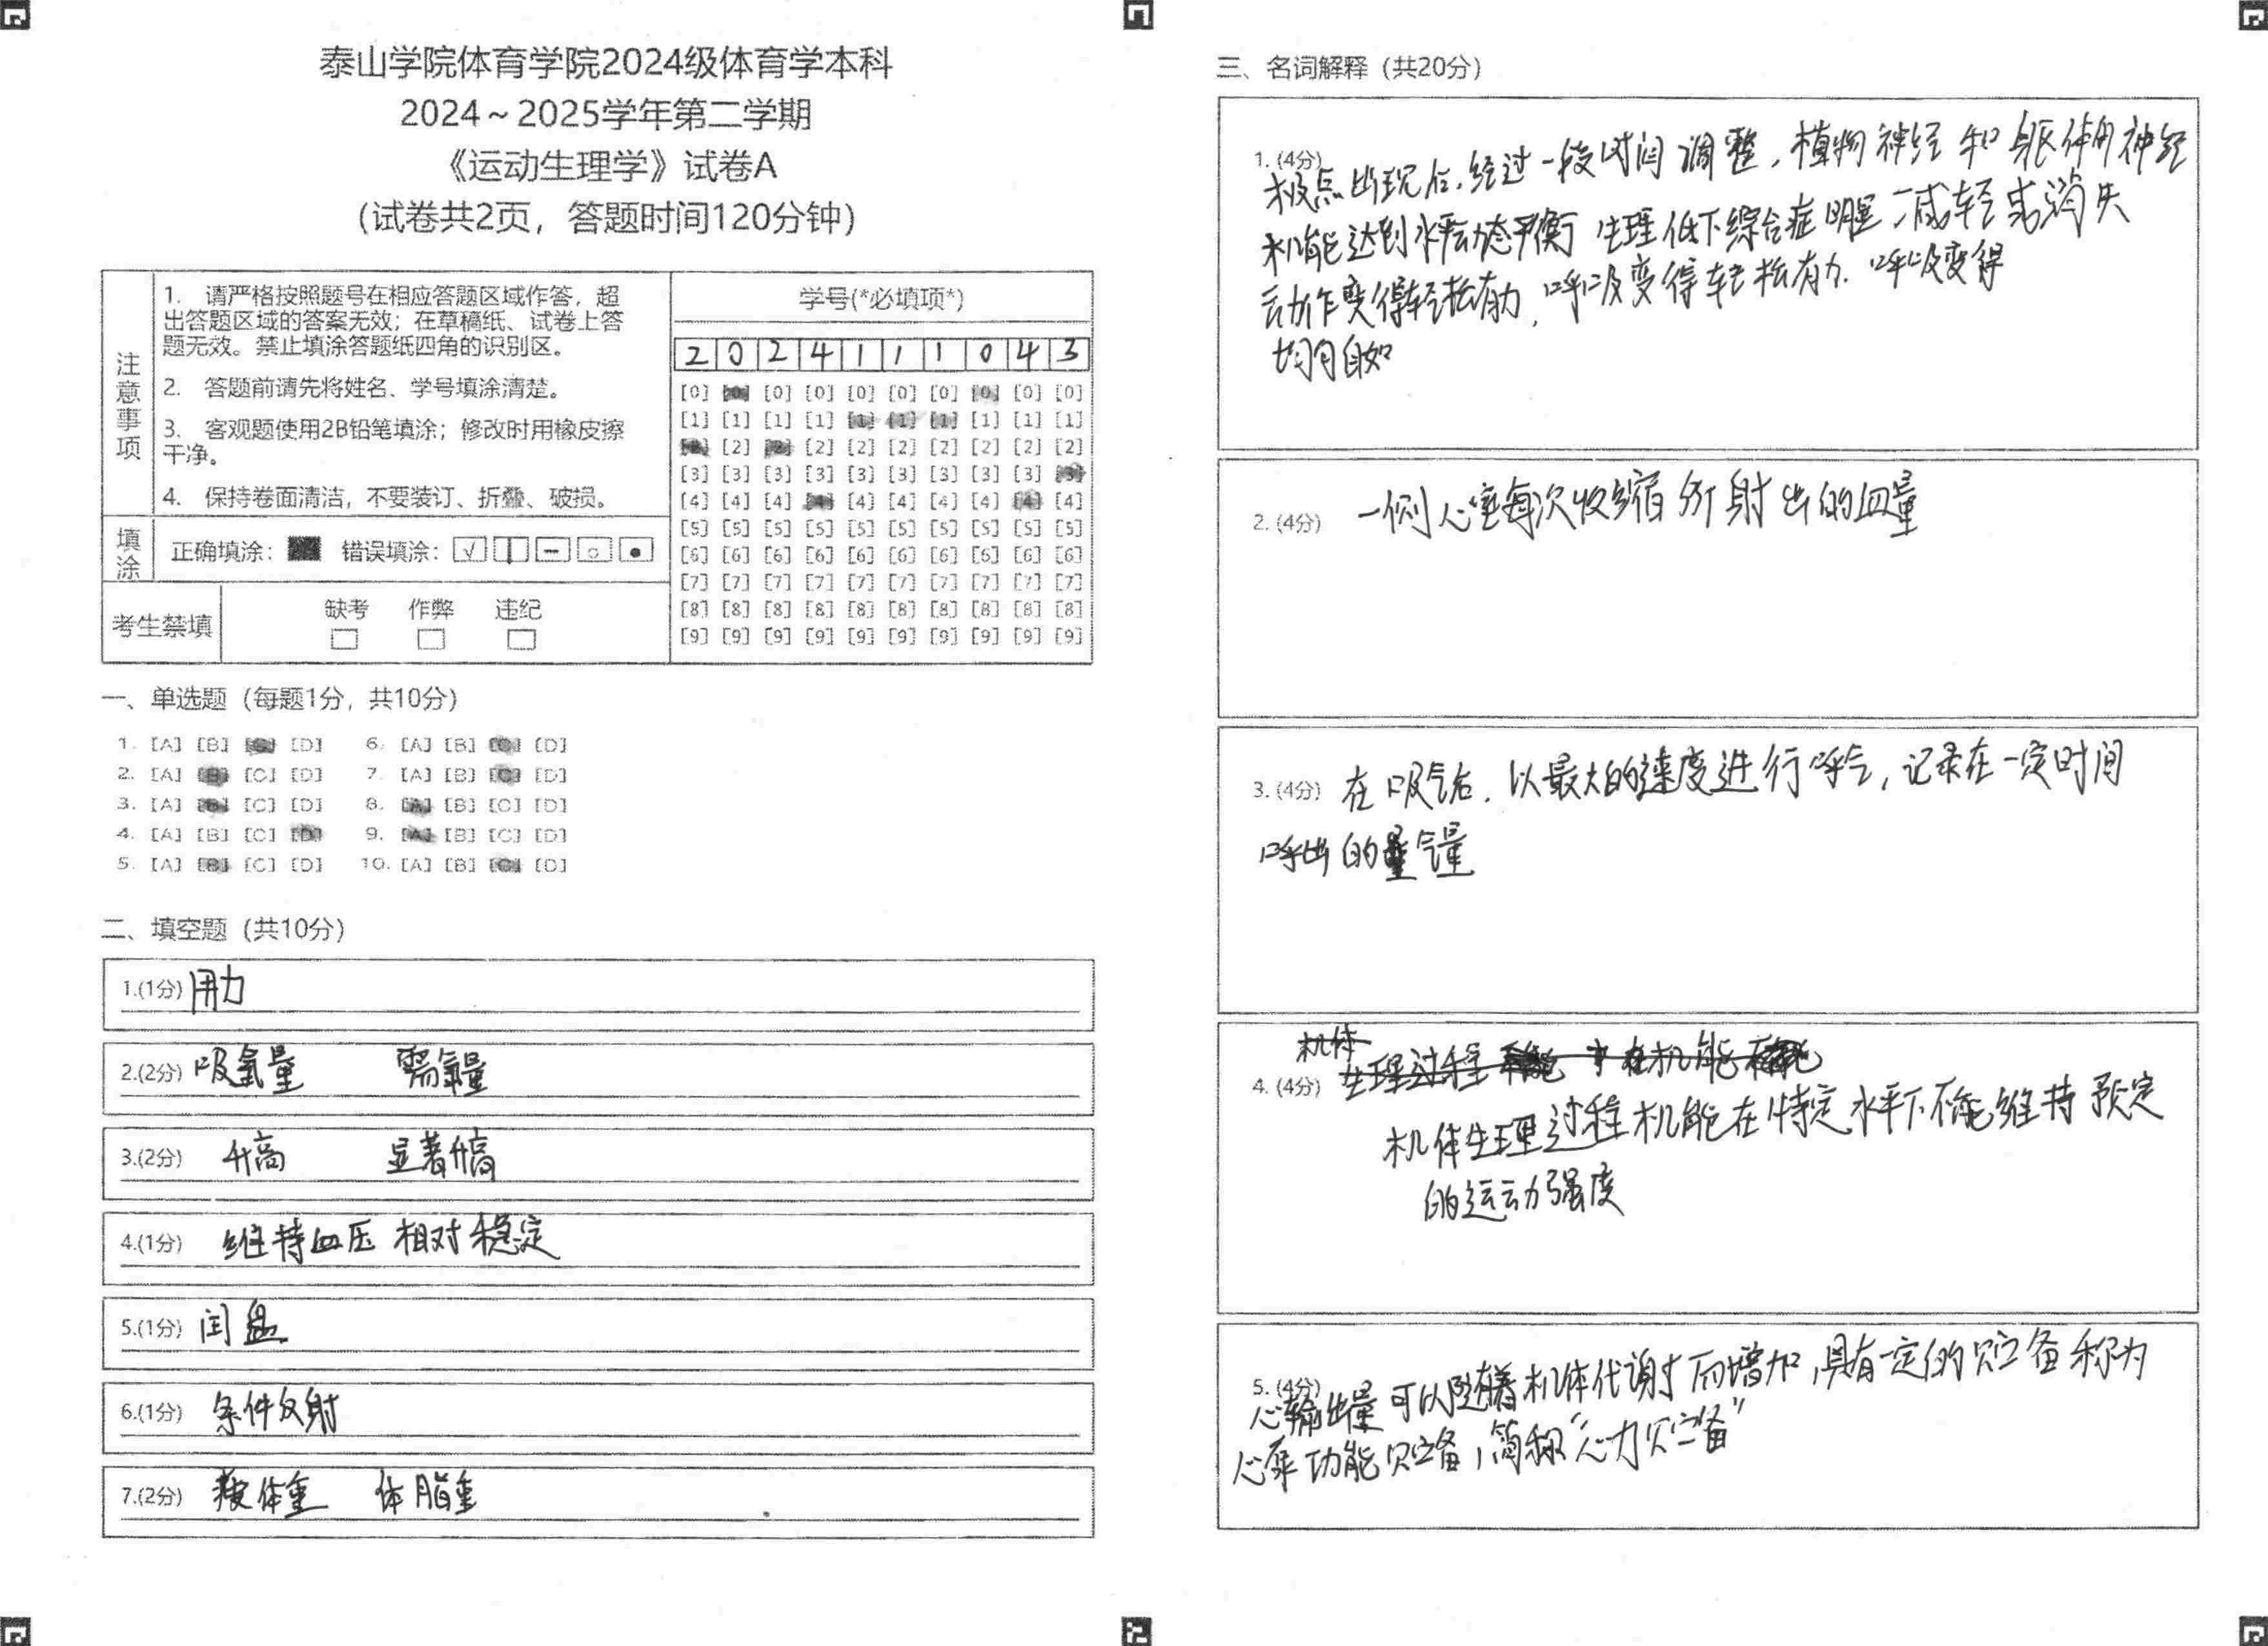 泰山学院体育学院2024级体育学本科
2024～2025学年第二学期
《运动生理学》试卷A
(试卷共2页，答题时间120分钟)
注意事项
1. 请严格按照题号在相应答题区域作答，超
出答题区域的答案无效；在草稿纸、试卷上答
题无效。禁止填涂答题纸四角的识别区。
2. 答题前请先将姓名、学号填涂清楚。
3. 客观题使用2B铅笔填涂；修改时用橡皮擦
干净。
4. 保持卷面清洁，不要装订、折叠、破损。
填涂 正确填涂： 错误填涂：
考生禁填 缺考 作弊 违纪
学号(*必填项*)
2 0 2 4 1 1 1 0 4 3
[0] [0] [0] [0] [0] [0] [0] [0] [0] [0]
[1] [1] [1] [1] [1] [1] [1] [1] [1] [1]
[2] [2] [2] [2] [2] [2] [2] [2] [2] [2]
[3] [3] [3] [3] [3] [3] [3] [3] [3] [3]
[4] [4] [4] [4] [4] [4] [4] [4] [4] [4]
[5] [5] [5] [5] [5] [5] [5] [5] [5] [5]
[6] [6] [6] [6] [6] [6] [6] [6] [6] [6]
[7] [7] [7] [7] [7] [7] [7] [7] [7] [7]
[8] [8] [8] [8] [8] [8] [8] [8] [8] [8]
[9] [9] [9] [9] [9] [9] [9] [9] [9] [9]
一、单选题（每题1分，共10分）
1. [A] [B] [C] [D] 6. [A] [B] [C] [D]
2. [A] [B] [C] [D] 7. [A] [B] [C] [D]
3. [A] [B] [C] [D] 8. [A] [B] [C] [D]
4. [A] [B] [C] [D] 9. [A] [B] [C] [D]
5. [A] [B] [C] [D] 10. [A] [B] [C] [D]
二、填空题（共10分）
1.(1分) 用力
2.(2分) 吸氧量 需氧量
3.(2分) 升高 显著升高
4.(1分) 维持血压相对稳定
5.(1分) 闰盘
6.(1分) 条件反射
7.(2分) 瘦体重 体脂重
三、名词解释（共20分）
1. (4分)
极点出现后，经过一段时间调整，植物神经和躯体神经
机能达到水平动态平衡 生理低下综合症明显减轻或消失
动作变得轻松有力，呼吸变得轻松有力．呼吸变得
均匀自如
2. (4分) 一侧心室每次收缩所射出的血量
3. (4分) 在吸气后，以最大的速度进行呼气，记录在一定时间
呼出的气量
机体
4. (4分) 生理过程 机能
机体生理过程机能在特定水平下不能维持预定
的运动强度
5. (4分)
心输出量可以随着机体代谢而增加，具有一定的贮备称为
心泵功能贮备，简称“心力贮备”